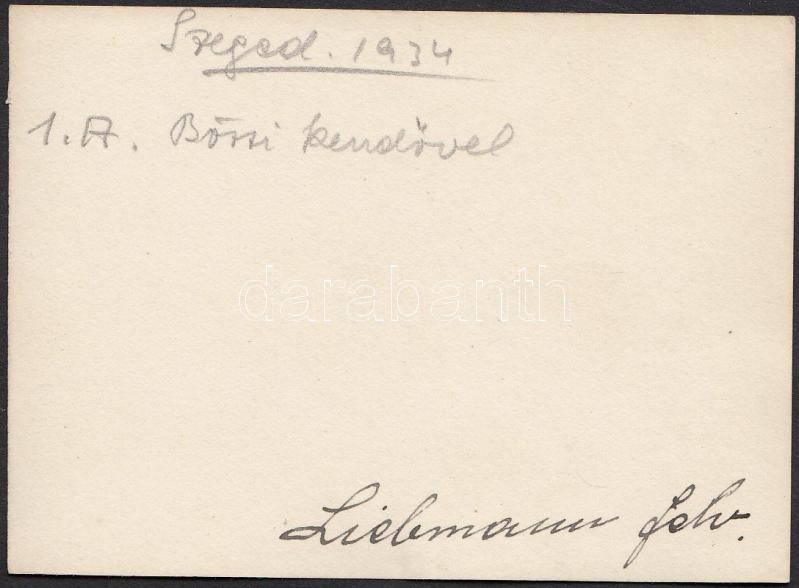 Szeged. 1934
1. A. Bőssi kendővel
darabanth
Liebmann felv.